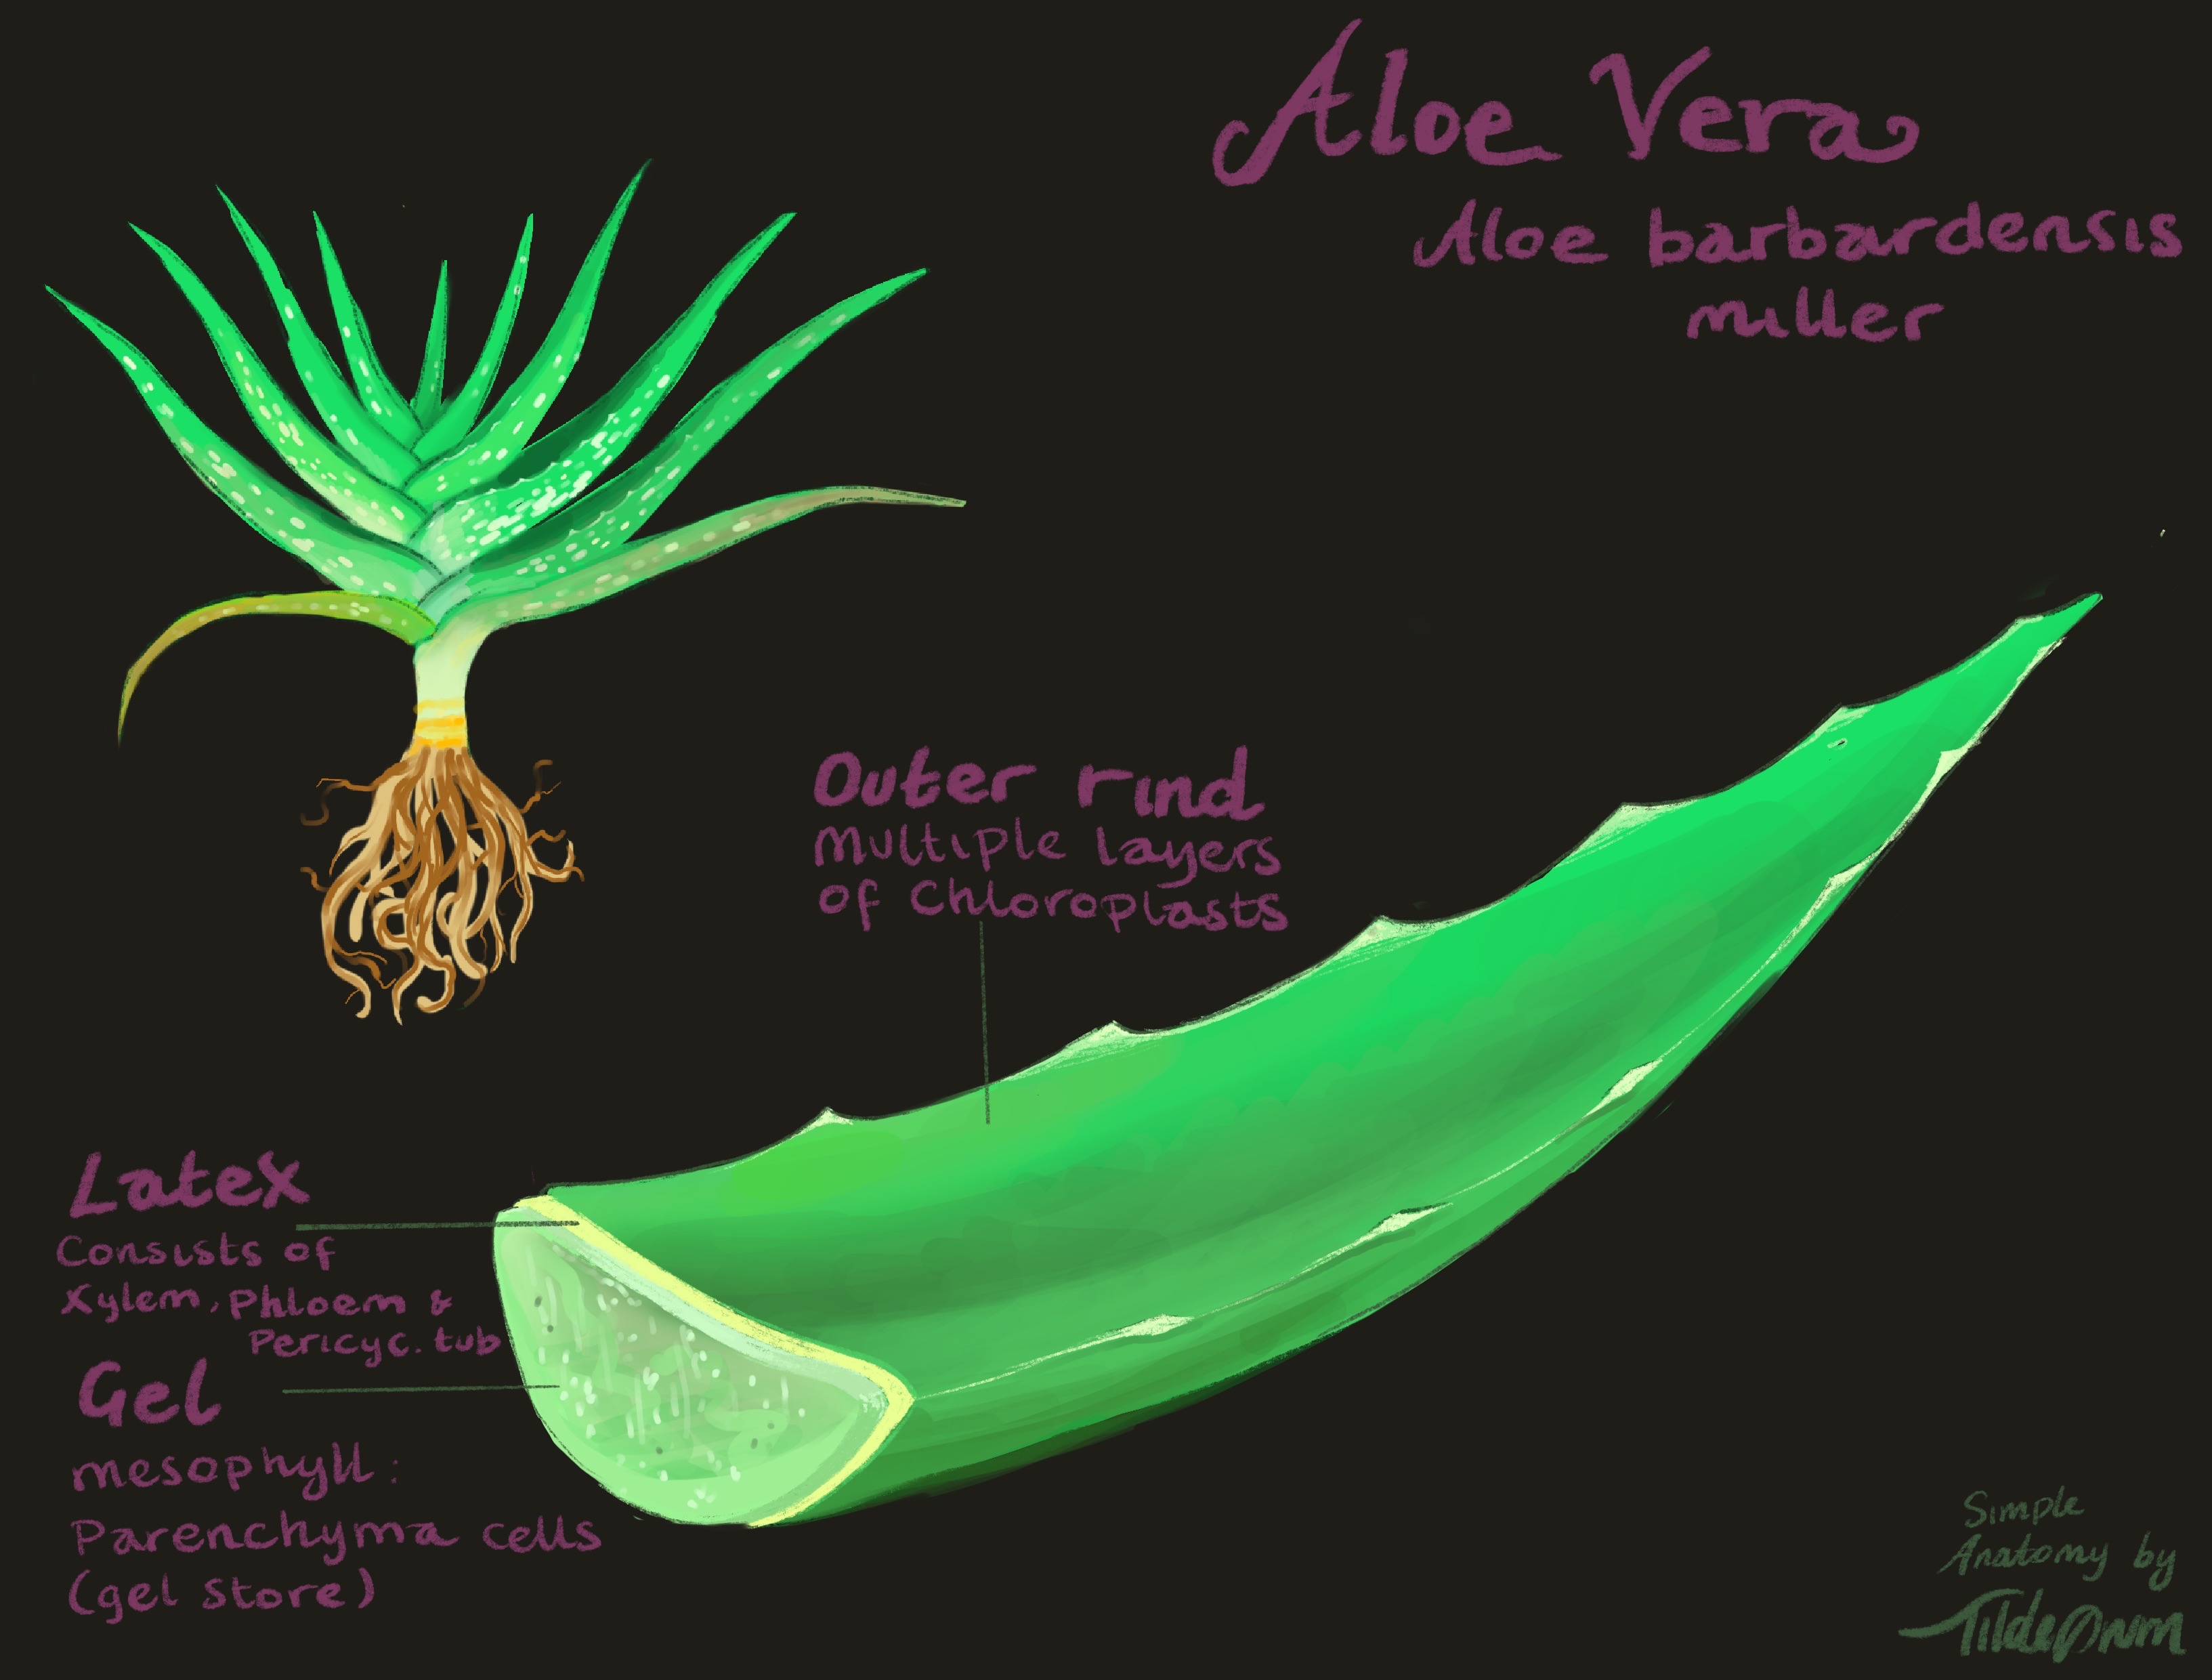 Aloe Vera
Aloe barbardensis
miller
Outer rind
Multiple layers
of Chloroplasts
Latex
Consists of
Xylem, Phloem &
Pericyc. tub
Gel
mesophyll:
Parenchyma cells
(gel store)
Simple
Anatomy by